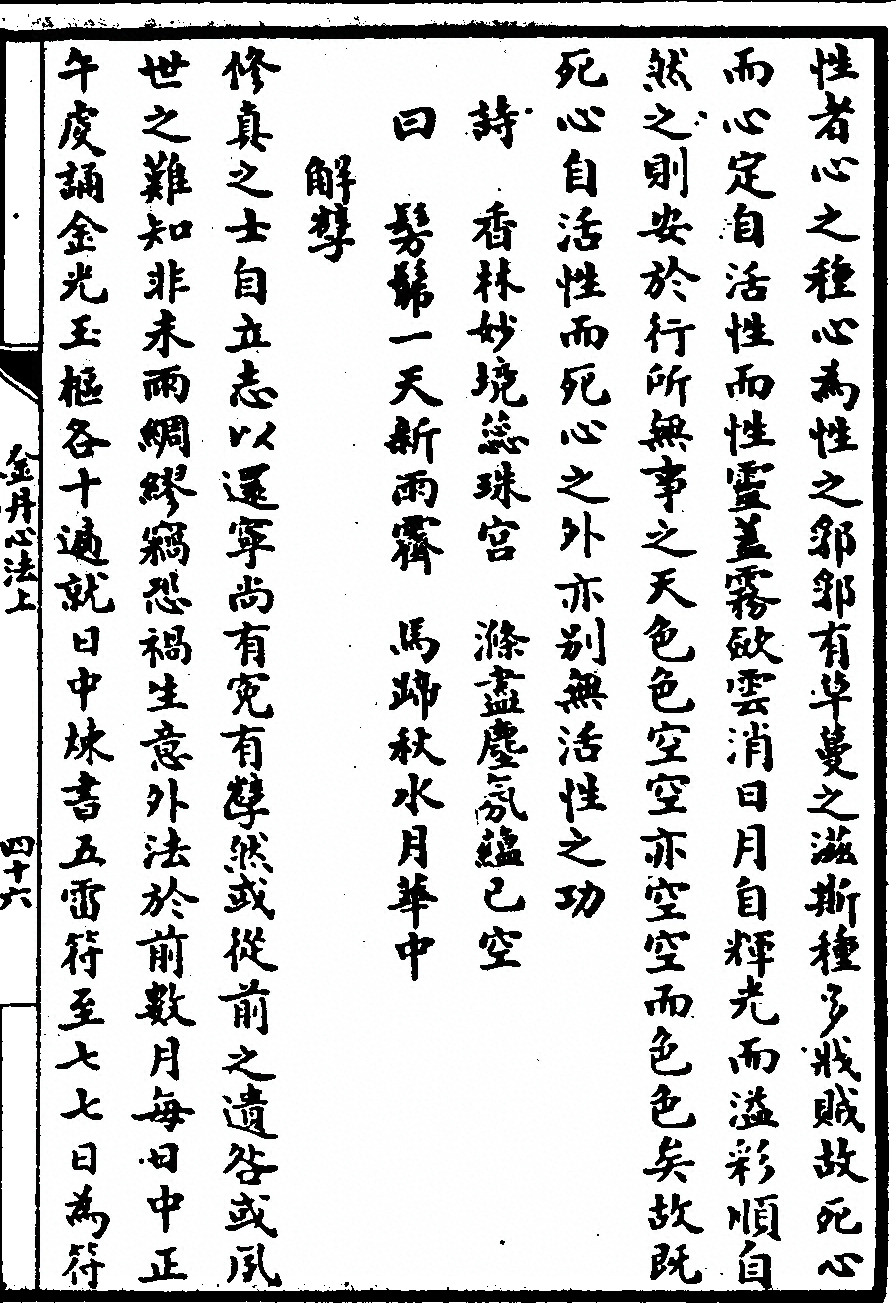 性者心之種心為性之郛郛有草蔓之滋斯種多戕賊故死心
而心定自活性而性靈蓋霧歛雲消日月自輝光而溢彩順自
然之則安於行所無事之天色色空空亦空空而色色矣故既
死心自活性而死心之外亦別無活性之功
詩　香林妙境蕊珠宮　滌盡塵氛蘊已空
曰　髣髴一天新雨霽　馬蹄秋水月華中
解孽
修真之士自立志以還寧尚有冤有孽然或從前之遺咎或夙
世之難知非未雨綢繆竊恐禍生意外法於前數月每日中正
午虔誦金光玉樞各十遍就日中煉書五雷符至七七日為符
金丹心法上
四十六